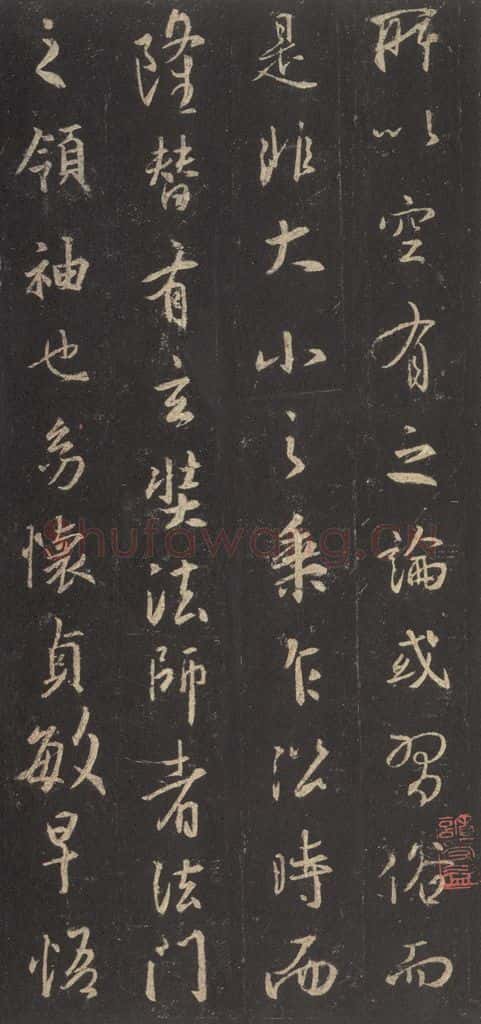 所以空有之論或習俗而
是非大小之乘乍沿時而
隆替有玄奘法師者法門
之領袖也幼懷貞敏早悟
Shufawang.CN